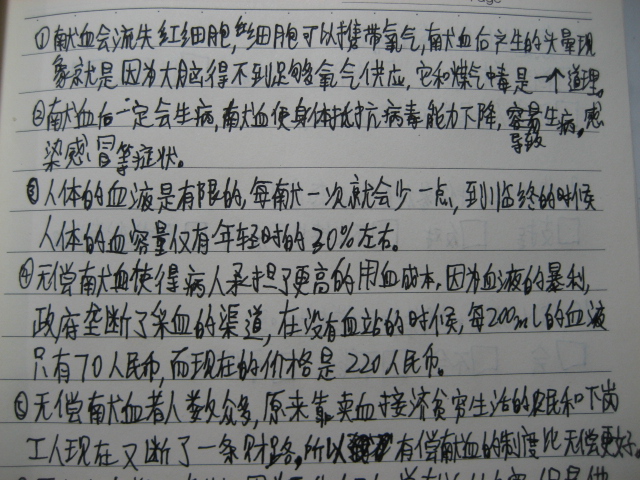 ①献血会流失红细胞,红细胞可以携带氧气,献血后产生的头晕现
象就是因为大脑得不到足够氧气供应,它和煤气中毒是一个道理。
②献血后一定会生病,献血使身体抵抗病毒能力下降,容易导致生病。感
染感冒等症状。
③人体的血液是有限的,每献一次就会少一点,到临终的时候
人体的血容量仅有年轻时的30%左右。
④无偿献血使得病人承担了更高的用血成本,因为血液的暴利,
政府垄断了采血的渠道,在没有血站的时候,每200mL的血液
只有70人民币,而现在的价格是220人民币。
⑤无偿献血者人数众多,原来靠卖血接济贫穷生活的农民和下岗
工人现在又断了一条财路。所以有偿献血的制度比无偿更好。